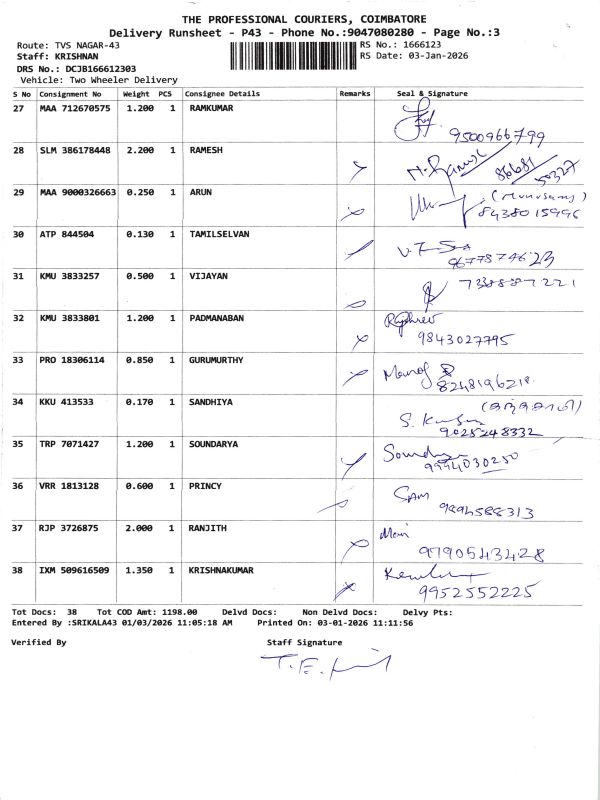 THE PROFESSIONAL COURIERS, COIMBATORE
Delivery Runsheet - P43 - Phone No.:9047080280 - Page No.:3
Route: TVS NAGAR-43 RS No.: 1666123
Staff: KRISHNAN RS Date: 03-Jan-2026
DRS No.: DCJB166612303
Vehicle: Two Wheeler Delivery
S No Consignment No Weight PCS Consignee Details Remarks Seal & Signature
27 MAA 712670575 1.200 1 RAMKUMAR
9500966799
28 SLM 386178448 2.200 1 RAMESH
86681
50327
29 MAA 9000326663 0.250 1 ARUN
8438015996
30 ATP 844504 0.130 1 TAMILSELVAN
9677874623
31 KMU 3833257 0.500 1 VIJAYAN
7388887221
32 KMU 3833801 1.200 1 PADMANABAN
9843027795
33 PRO 18306114 0.850 1 GURUMURTHY
Manoj
8248196218
34 KKU 413533 0.170 1 SANDHIYA
9025248332
35 TRP 7071427 1.200 1 SOUNDARYA
9994030250
36 VRR 1813128 0.600 1 PRINCY
SAM
9894588313
37 RJP 3726875 2.000 1 RANJITH
Mani
9790543428
38 IXM 509616509 1.350 1 KRISHNAKUMAR
9952552225
Tot Docs: 38 Tot COD Amt: 1198.00 Delvd Docs: Non Delvd Docs: Delvy Pts:
Entered By :SRIKALA43 01/03/2026 11:05:18 AM Printed On: 03-01-2026 11:11:56
Verified By Staff Signature